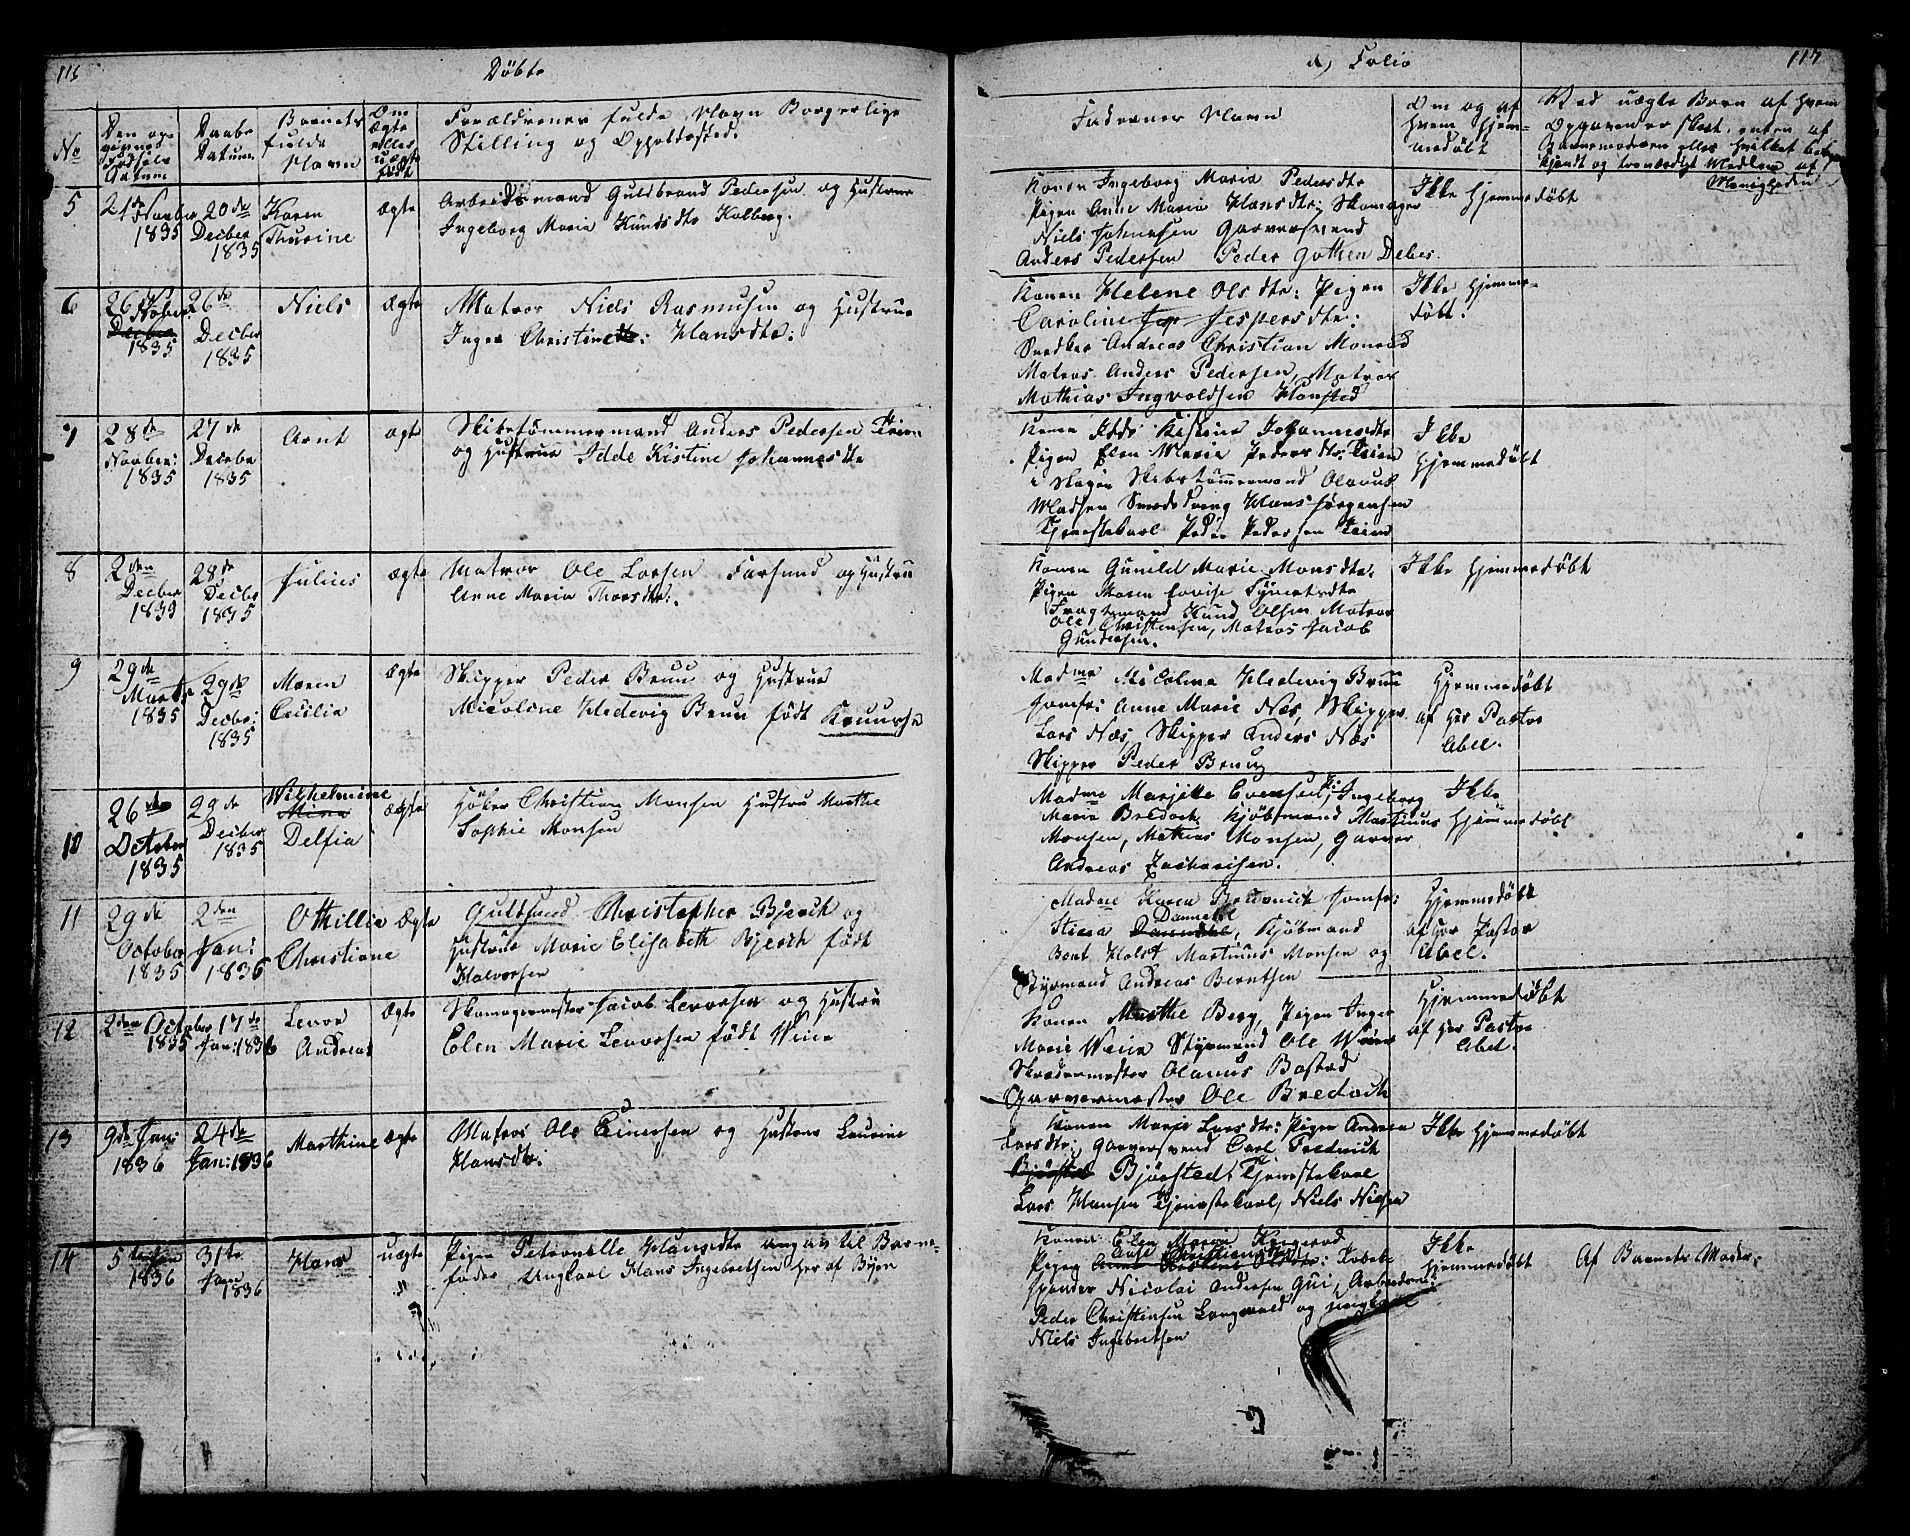 116
Döbte
No
Den op-
givne
Födsels
Datum
Daabs
Datum
Barnets
fulde
Navn
Om
Ægte
eller
uægte
født
Forældrenes fulde Navn Borgerlige
Stilling og Opholdssted.
5
21de Novber
1835
20de
Decber
1835
Karen
Thurine
ægte
Arbeidsmand Guldbrand Pedersen og Hustrue
Ingeborg Marie Knudsdtr Kolberg.
6
26de Novber
Decber
1835
26de
Decber
1835
Niels
Ægte
Matros Niels Rasmusen og Hustrue
Inger Christine Hansdtr:
7
28de
Novber:
1835
27de
Decbr
1835
Arnt
ægte
Skibstömmermand Anders Pedersen Teien
og Hustrue Idde Kistine Johannesdtr
8
2den
Decber
1835
28de
Decbr
1835
Julius
Ægte
Matros Ole Larsen Farsund og Hustru
Anne Maria Thorsdtr:
9
29de
Marts
1835
29de
Decbr:
1835
Maren
Cecilia
Ægte
Skipper Peder Bruu og Hustrue
Nicoline Hedevig Bruu född
10
26de
October
1835
29de
Decber
1835
Wilhelmine
Mina
Delfia
ægte
Höker Christian Monsen Hustru Marthe
Sophie Monsen
11
29de
October
1835
2den
Jan:
1836
Othillia
Christiane
Ægte
Guldsmed Christopher Bjerch og
Hustrue Marie Elisabeth Bjerch född
Halvorsen
12
2den October
1835
17de
Jan: 1836
Levor
Andreas
Ægte
Skomagermester Jacob Levorsen og Hustru
Elen Marie Levorsen född Weie
13
9de Jan:
1836
24de
Jan: 1836
Marthine
Ægte
Matros Ole Einersen og Hustrue Laurine
Hansdtr:
14
5te Jan
1836
31te
Jan
1836
Hans
uægte
Pigen Petronelle Hansdtr angav til Barne-
fader Ungkarl Hans Ingebretsen her af Byen
a) Folio
117
Faderner Navn
Om og af
hvem hjem-
medöbt
Ved uægte Börn af hvem
Opgaven er skeet, enten af
Barnemoderen eller hvilket be-
kjendt og troværdigt Medlem af
Menigheden
Konen Ingeborg Maria Pedersdtr
Pigen Anne Maria Hansdtr; Skomager
Niels Johnesen Garversvend
Anders Pedersen Peder Gotken Debes.
Ikke Hjemmedöbt
Konen Helene Olsdtr: Pigen
Caroline Jespersdtr:
Snedker Andreas Christian Monrad
Matros Anders Pedersen, Matros
Mathias Ingvoldsen Hansted
Ikke Hjemme-
döbt.
Konen Idde Kistine Johannesdtr
Pigen Elen Marie Pedersdtr: Teien
i Skogen Skibstömmermand Olavus
Madsen Smededreng Hans Jörgensen
Tjenestekarl Peder Pedersen Teien
Ikke
Hjemmedöbt
Konen Gunild Marie Monsdtr.
Pigen Maren Lovise
Fragtemand Knud Olsen Matros
Ole Christensen, Matros Jacob
Gundersen.
Ikke Hjemmedöbt
Madme Nicolina Hedevig Bruu
Jomfr: Anne Marie Næs, Skipper
Lars Næs, Skipper Anders Næs
Skipper Peder Bruu
Hjemmedöbt
af Her Pastor
Abel.
Madme Marjitte Evensen, Ingeborg
Maria Bredoch. Kjöbmand Martinus
Monsen, Mathias Monsen, Garver
Andreas Zachariesen.
Ikke
Hjemmedöbt
Madme Karen Jomfr:
Stiesa Dannevel, Kjöbmand
Bent Holst Martinus Monsen og
Styrmand Andreas Berntsen
Hjemmedöbt
af Her Pastor
Abel.
Konen Marthe Berg, Pigen Inger
Marie Weie Styrmand Ole Weie
Skrædermester Olanus Bastad
Garvermester Ole Bredoch
Hjemmedöbt
af Her Pastor
Abel.
Konen Marie Larsdtr: Pigen Andrea
Larsdtr: Garversvend Carl Frederich
Björsted Björsted, Tjenestekarl
Lars Hansen Tjenestekarl, Niels Nielsen
Ikke Hjemmedöbt
Konen Elen Maria
Pigen Anne Christiansdtr: Tobaks
spinder Nicolai Andersen Gui, Arbeidsm:
Peder Christensen Langevold og Ungkarl
Niels Ingebretsen
Ikke
Hjemmedöbt
Af Barnets Moder.